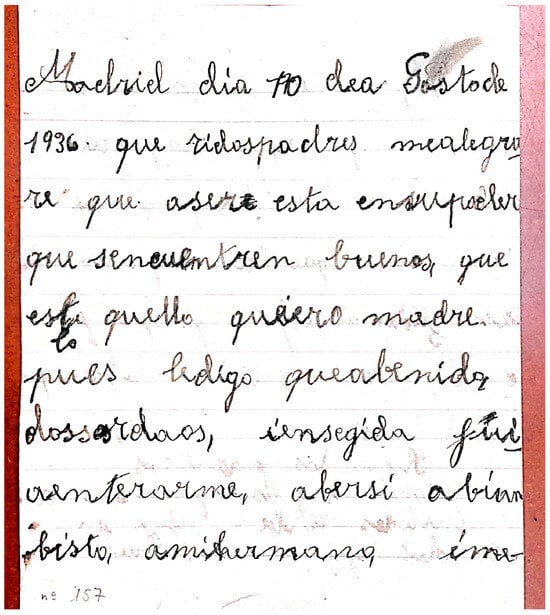 Madrid dia 10 dea Gostode
1936 que ridospadres mealegra
re que aser esta ensupoder
que sencuentren buenos, que
es quello quiero madre.
lo
pues ledigo queabenido
dossordaos, iensegida fui
aenterarme, abersi abian
bisto, amihermano, ime
nº 157